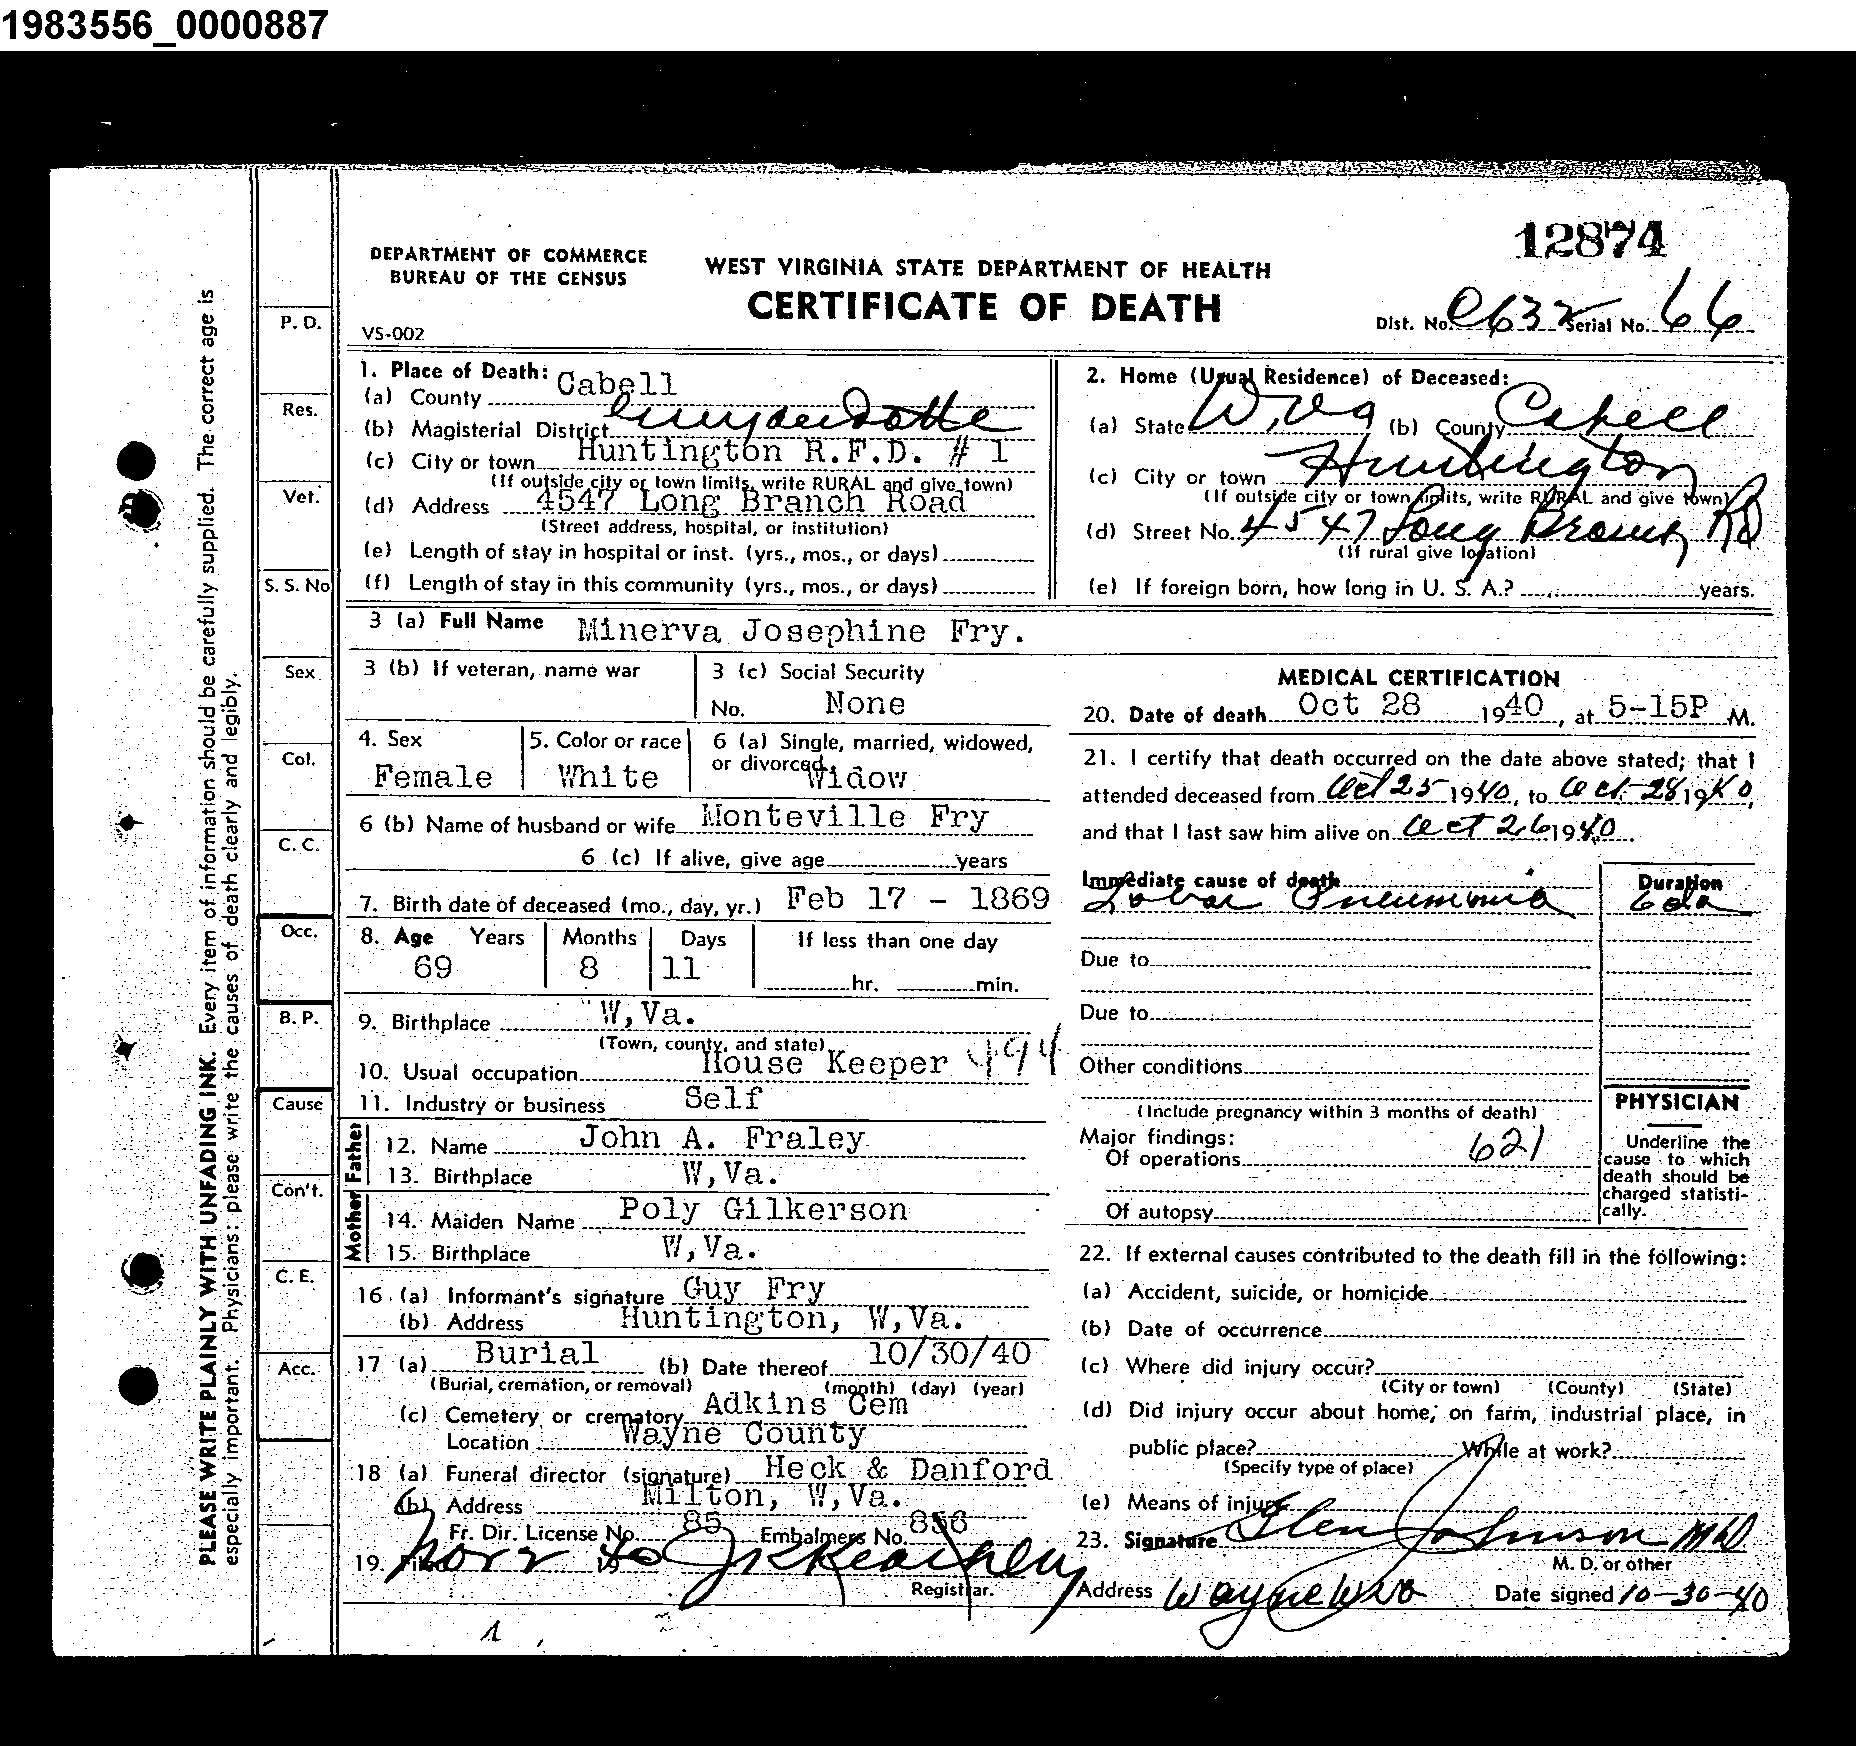 1983556_0000887
12874
DEPARTMENT OF COMMERCE
BUREAU OF THE CENSUS
WEST VIRGINIA STATE DEPARTMENT OF HEALTH
CERTIFICATE OF DEATH
VS-002
Dist. No. 0632 Serial No. 66
1. Place of Death:
(a) County Cabell
(b) Magisterial District Guyandotte
(c) City or town Huntington R.F.D. # 1
(If outside city or town limits, write RURAL and give town)
(d) Address 4547 Long Branch Road
(Street address, hospital, or institution)
(e) Length of stay in hospital or inst. (yrs., mos., or days)
(f) Length of stay in this community (yrs., mos., or days)
2. Home (Usual Residence) of Deceased:
(a) State W. Va (b) County Cabell
(c) City or town Huntington
(If outside city or town limits, write RURAL and give town)
(d) Street No. 4547 Long Branch Rd
(If rural give location)
(e) If foreign born, how long in U. S. A.? years.
3 (a) Full Name Minerva Josephine Fry.
3 (b) If veteran, name war
3 (c) Social Security
No. None
4. Sex
Female
5. Color or race
White
6 (a) Single, married, widowed,
or divorced Widow
6 (b) Name of husband or wife Monteville Fry
6 (c) If alive, give age years
7. Birth date of deceased (mo., day, yr.) Feb 17 - 1869
8. Age Years Months Days If less than one day
69 8 11 hr. min.
9. Birthplace W,Va.
(Town, county, and state)
10. Usual occupation House Keeper 494
11. Industry or business Self
Father
12. Name John A. Fraley
13. Birthplace W,Va.
Mother
14. Maiden Name Poly Gilkerson
15. Birthplace W,Va.
16 (a) Informant's signature Guy Fry
(b) Address Huntington, W,Va.
17 (a) Burial (b) Date thereof 10/30/40
(Burial, cremation, or removal) (month) (day) (year)
(c) Cemetery or crematory Adkins Cem
Location Wayne County
18 (a) Funeral director (signature) Heck & Danford
(b) Address Milton, W,Va.
Fr. Dir. License No. 85 Embalmers No. 856
19. Filed Nov 2 40
Registrar.
MEDICAL CERTIFICATION
20. Date of death Oct 28 1940, at 5-15P M.
21. I certify that death occurred on the date above stated; that I
attended deceased from Oct 25 1940, to Oct. 28 1940,
and that I last saw him alive on Oct 26 1940.
Immediate cause of death
Lobar Pneumonia
Duration
6 da
Due to
Due to
Other conditions
(Include pregnancy within 3 months of death)
Major findings:
Of operations 621
Of autopsy
PHYSICIAN
Underline the
cause to which
death should be
charged statisti-
cally.
22. If external causes contributed to the death fill in the following:
(a) Accident, suicide, or homicide
(b) Date of occurrence
(c) Where did injury occur?
(City or town) (County) (State)
(d) Did injury occur about home, on farm, industrial place, in
public place? While at work?
(Specify type of place)
(e) Means of injury
23. Signature Glen Johnson MD
M. D. or other
Address Wayne W Va Date signed 10-30-40
PLEASE WRITE PLAINLY WITH UNFADING INK. Every item of information should be carefully supplied. The correct age is
especially important. Physicians: please write the causes of death clearly and legibly.
P. D.
Res.
Vet.
S. S. No
Sex
Col.
C. C.
Occ.
B. P.
Cause
Con't.
C. E.
Acc.
1